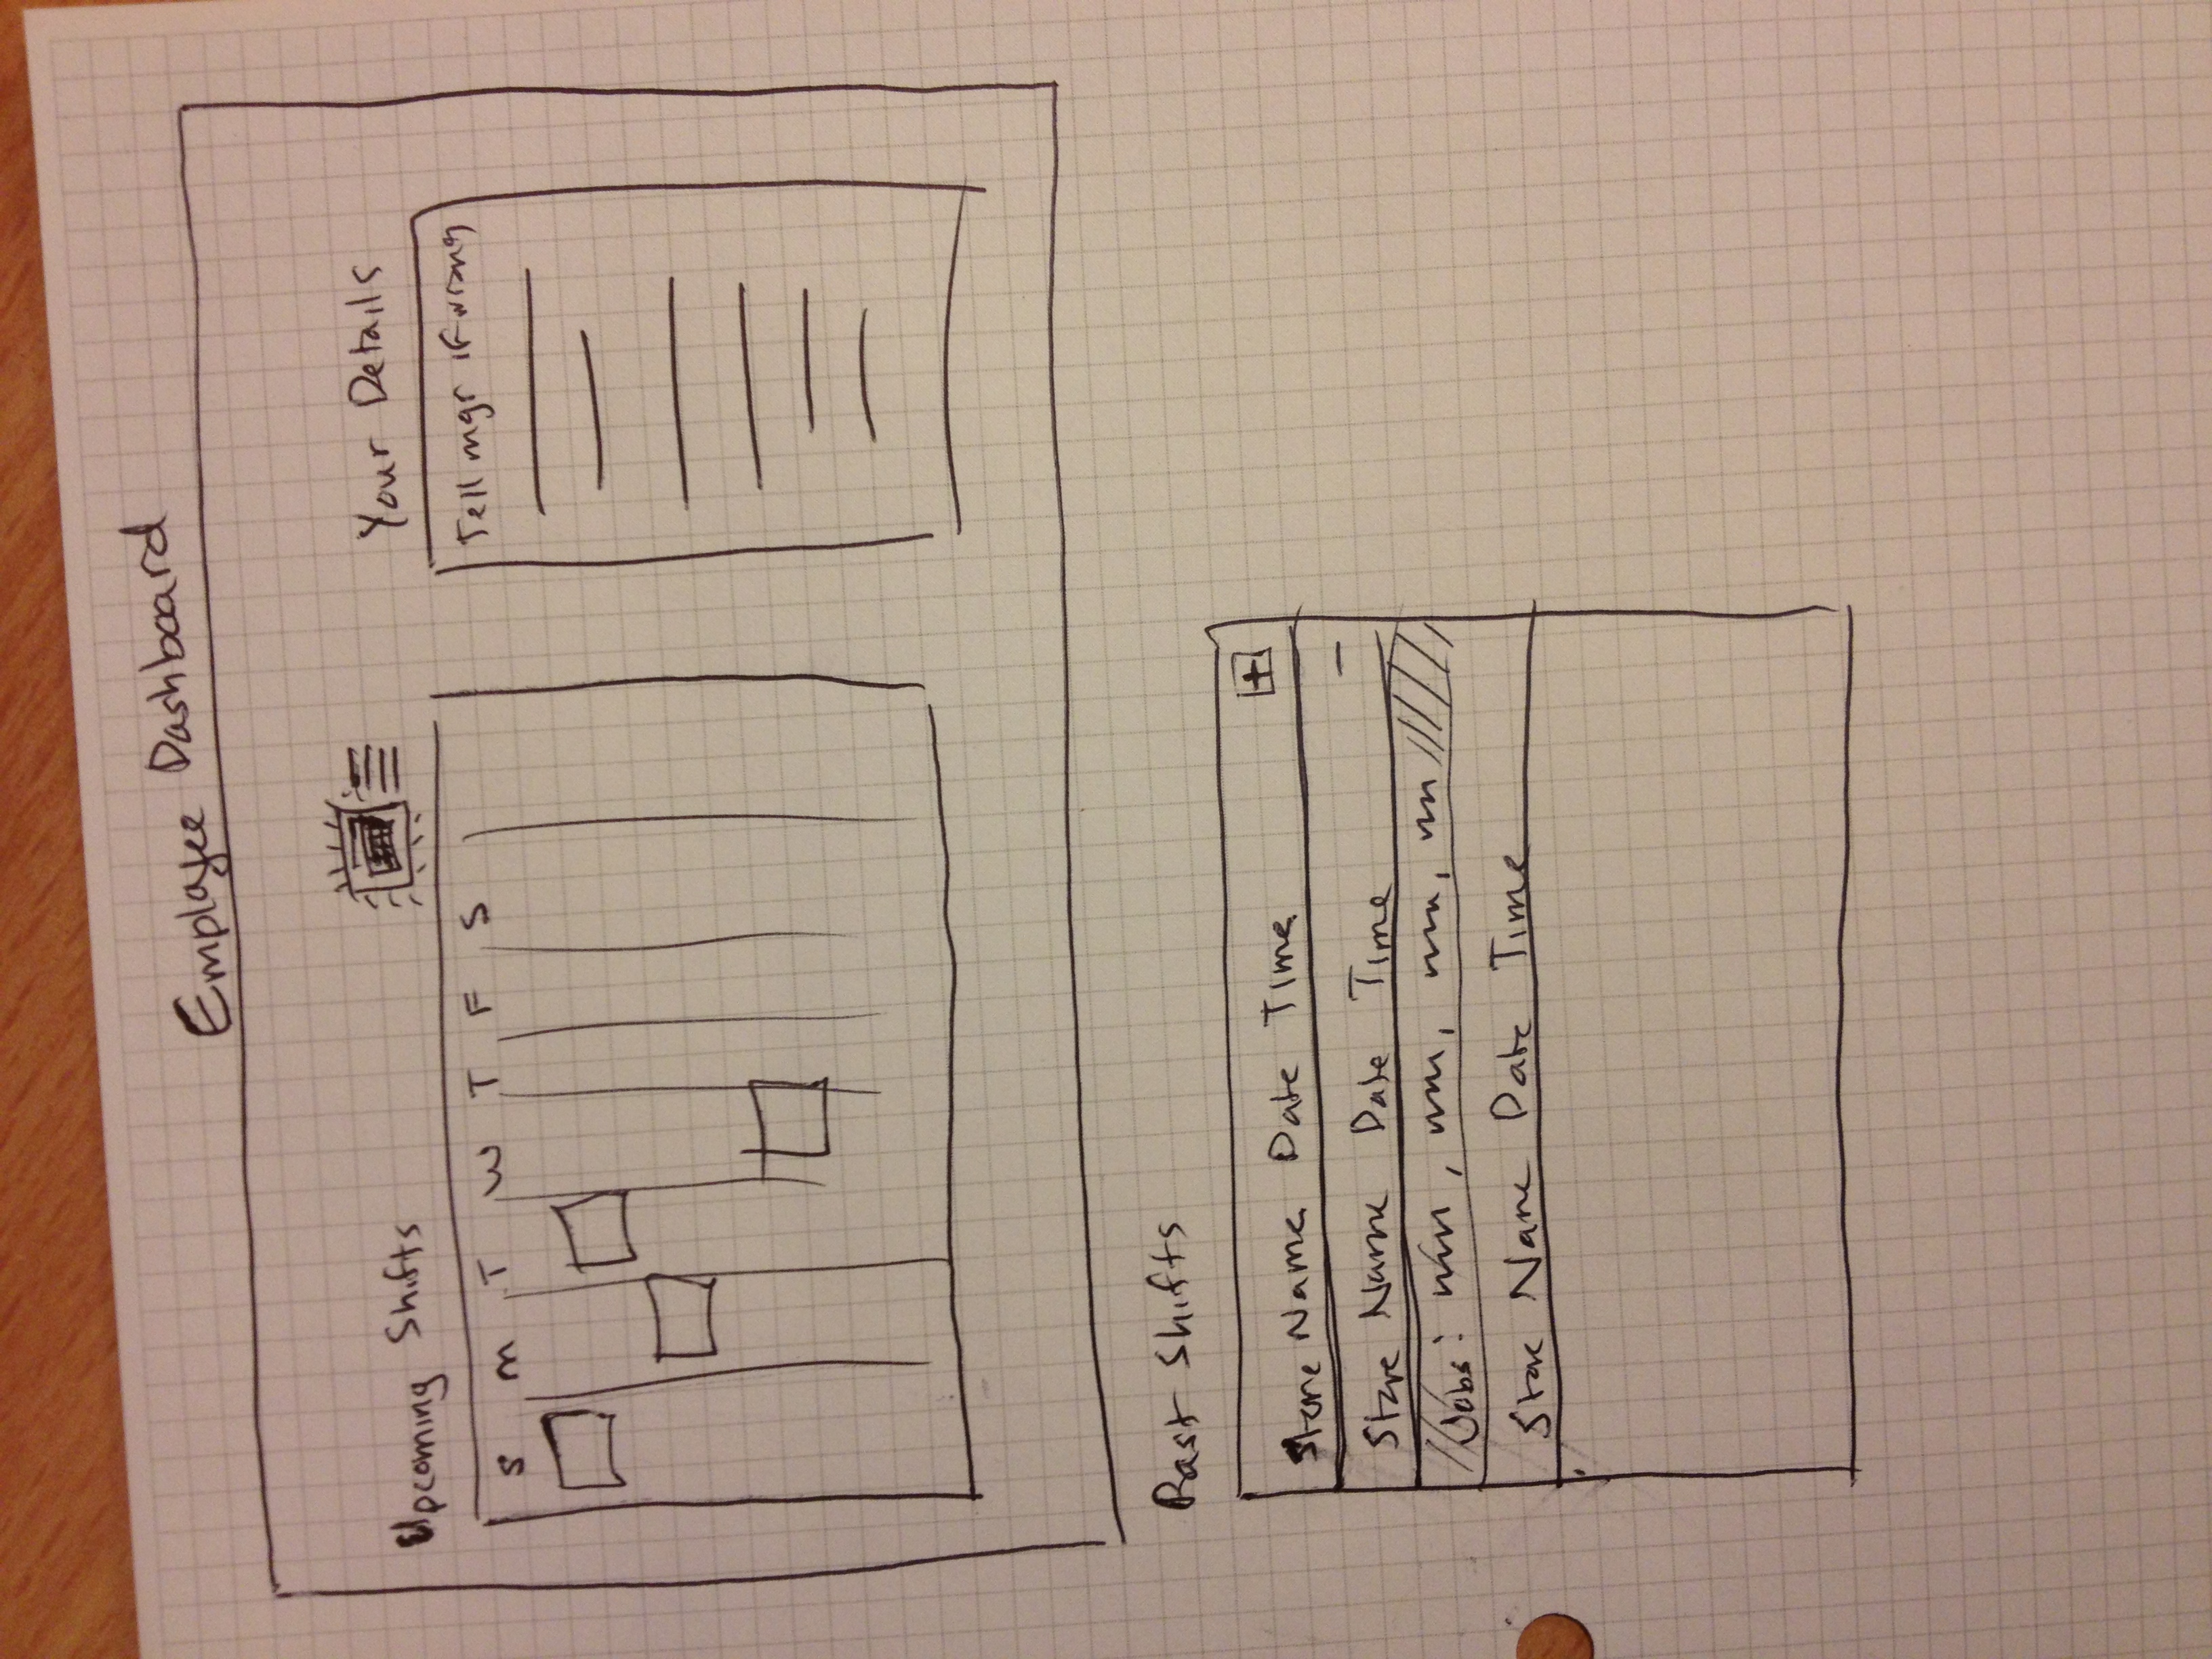 Employee Dashboard
Upcoming Shifts
S M T W T F S
Your Details
Tell mgr if wrong
Past Shifts
Store Name Date Time +
Store Name Date Time −
Jobs:
Store Name Date Time